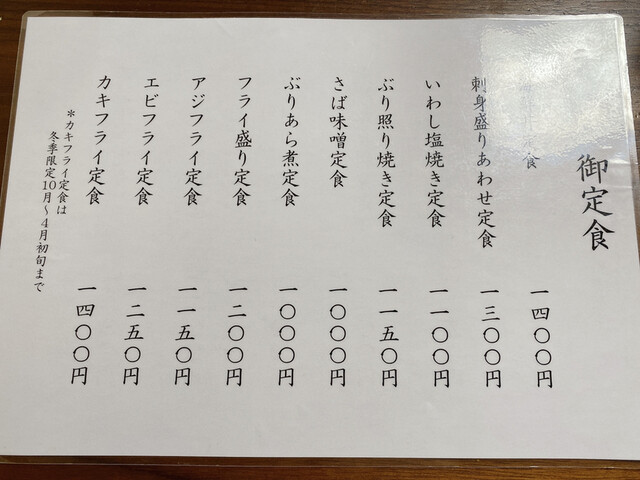 御定食
食 一四〇〇円
刺身盛りあわせ定食 一三〇〇円
いわし塩焼き定食 一一〇〇円
ぶり照り焼き定食 一一五〇円
さば味噌定食 一〇〇〇円
ぶりあら煮定食 一〇〇〇円
フライ盛り定食 一二〇〇円
アジフライ定食 一一五〇円
エビフライ定食 一二五〇円
カキフライ定食 一四〇〇円
＊カキフライ定食は
冬季限定10月〜4月初旬まで